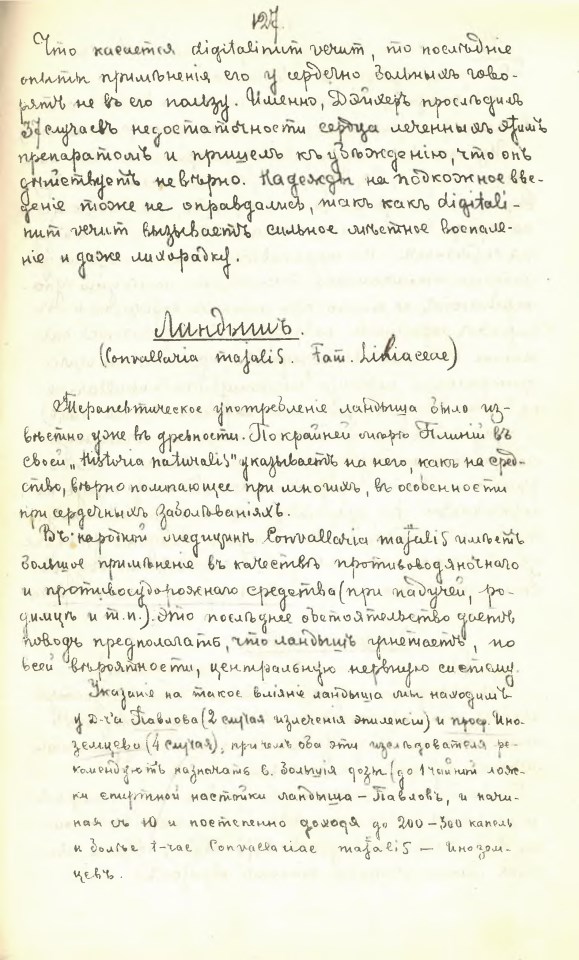 127.
Что касается digitalinum verum, то последніе
опыты примѣненія его у сердечно больныхъ гово-
рятъ не въ его пользу. Именно, Дэйхеръ прослѣдилъ
37 случаевъ недостаточности сердца леченныхъ этимъ
препаратомъ и пришелъ къ убѣжденію, что онъ
дѣйствуетъ невѣрно. Надежды на подкожное вве-
деніе тоже не оправдались, такъ какъ digitali-
num verum вызываетъ сильное мѣстное воспале-
ніе и даже лихорадку.
Ландышъ.
(Convallaria majalis. Fam. Liliaceae)
Терапевтическое употребленіе ландыша было из-
вѣстно уже въ древности. По крайней мѣрѣ Плиній въ
своей „Historia naturalis" указываетъ на него, какъ на сред-
ство, вѣрно помогающее при многихъ, въ особенности
при сердечныхъ заболѣваніяхъ.
Въ народной медицинѣ Convallaria majalis имѣетъ
большое примѣненіе въ качествѣ противоводяночнаго
и противосудорожнаго средства (при падучей, ро-
димцѣ и т.п.). Это послѣднее обстоятельство даетъ
поводъ предполагать, что ландышъ угнетаетъ, по
всей вѣроятности, центральную нервную систему.
Указаніе на такое вліяніе ландыша мы находимъ
у д-ра Павлова (2 случая излеченія эпилепсіи) и проф. Ино-
земцева (4 случая), причемъ оба эти изслѣдователя ре-
комендуютъ назначать б. большія дозы (до 1 чайной лож-
ки спиртной настойки ландыша – Павловъ, и начи-
ная съ 10 и постепенно доходя до 200–300 капель
и болѣе t-rae Convallariae majalis — Инозем-
цевъ.